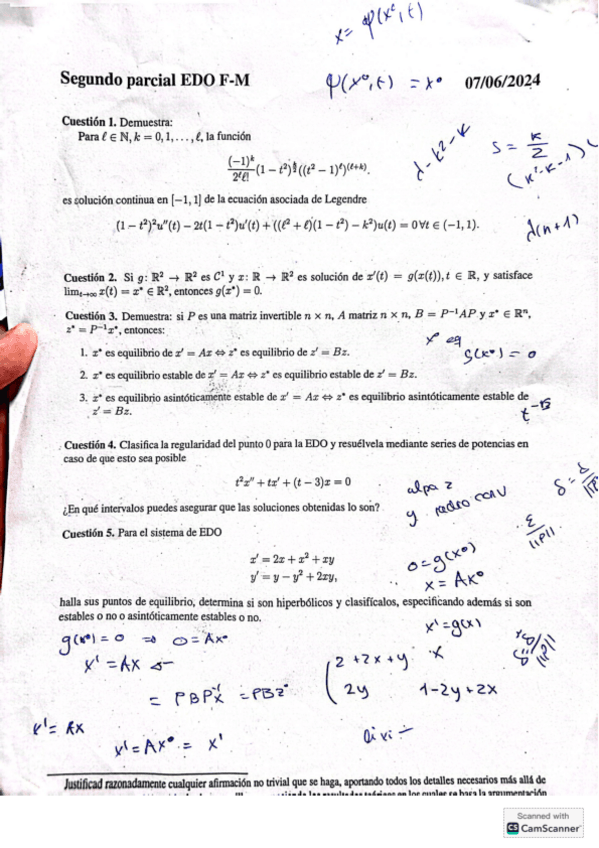 x = φ(x⁰, t)
Segundo parcial EDO F-M
φ(x⁰, t) = x⁰
07/06/2024
Cuestión 1. Demuestra:
Para ℓ ∈ ℕ, k = 0, 1, . . . , ℓ, la función
(−1)^k / (2^ℓ ℓ!) (1 − t²)^(k/2) ((t² − 1)^ℓ)^(ℓ+k).
λ - k² - k
s = k/2
(k² - k - 1)
es solución continua en [−1, 1] de la ecuación asociada de Legendre
(1 − t²)²u''(t) − 2t(1 − t²)u'(t) + ((ℓ² + ℓ)(1 − t²) − k²)u(t) = 0 ∀t ∈ (−1, 1).
λ(n+1)
Cuestión 2. Si g: ℝ² → ℝ² es C¹ y x: ℝ → ℝ² es solución de x'(t) = g(x(t)), t ∈ ℝ, y satisface
lim_{t→∞} x(t) = x* ∈ ℝ², entonces g(x*) = 0.
Cuestión 3. Demuestra: si P es una matriz invertible n × n, A matriz n × n, B = P⁻¹AP y x* ∈ ℝⁿ,
z* = P⁻¹x*, entonces:
x* eq
g(x⁰) = 0
1. x* es equilibrio de x' = Ax ⇔ z* es equilibrio de z' = Bz.
2. x* es equilibrio estable de x' = Ax ⇔ z* es equilibrio estable de z' = Bz.
3. x* es equilibrio asintóticamente estable de x' = Ax ⇔ z* es equilibrio asintóticamente estable de
z' = Bz.
Cuestión 4. Clasifica la regularidad del punto 0 para la EDO y resuélvela mediante series de potencias en
caso de que esto sea posible
t²x'' + tx' + (t − 3)x = 0
¿En qué intervalos puedes asegurar que las soluciones obtenidas lo son?
Cuestión 5. Para el sistema de EDO
x' = 2x + x² + xy
y' = y − y² + 2xy,
0 = g(x⁰)
x = Ax⁰
halla sus puntos de equilibrio, determina si son hiperbólicos y clasifícalos, especificando además si son
estables o no o asintóticamente estables o no.
x' = g(x)
g(x⁰) = 0 ⇒ 0 = Ax⁰
x' = Ax
2 + 2x + y x
2y 1 - 2y + 2x
x' = Ax
x' = Ax⁰ = x'
Justificad razonadamente cualquier afirmación no trivial que se haga, aportando todos los detalles necesarios más allá de
Scanned with
CS CamScanner